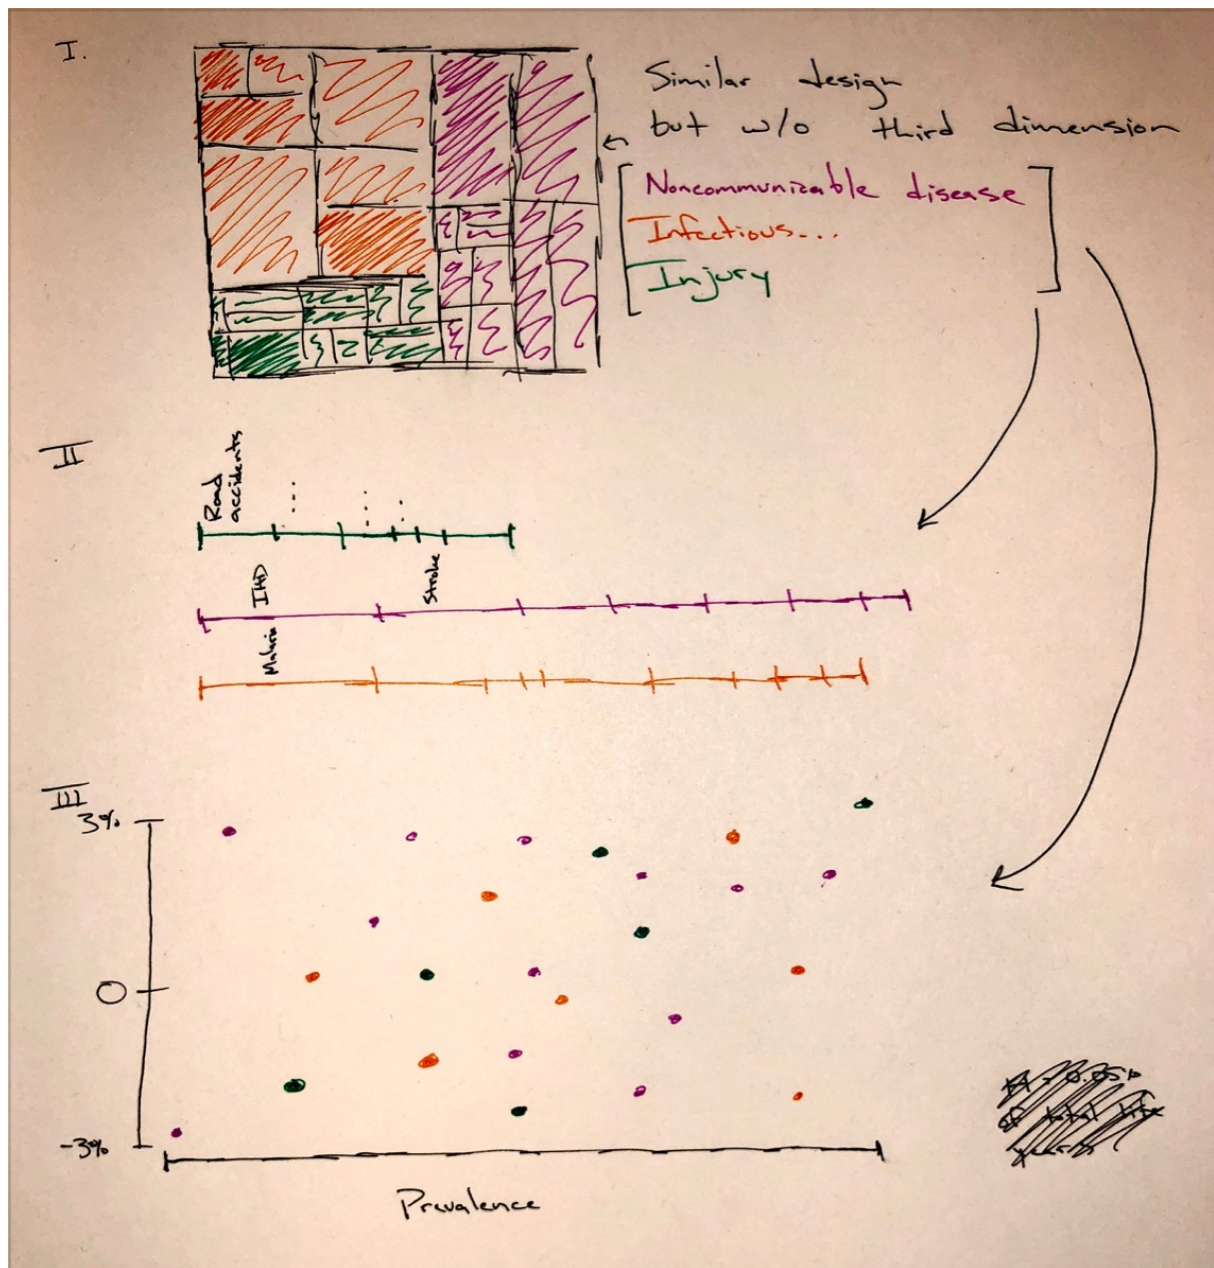 I.
Similar design
but w/o third dimension
Noncommunicable disease
Infectious...
Injury
II
Road
accidents
IHD
Stroke
Malaria
III
3%
0
-3%
Prevalence
of total life
years